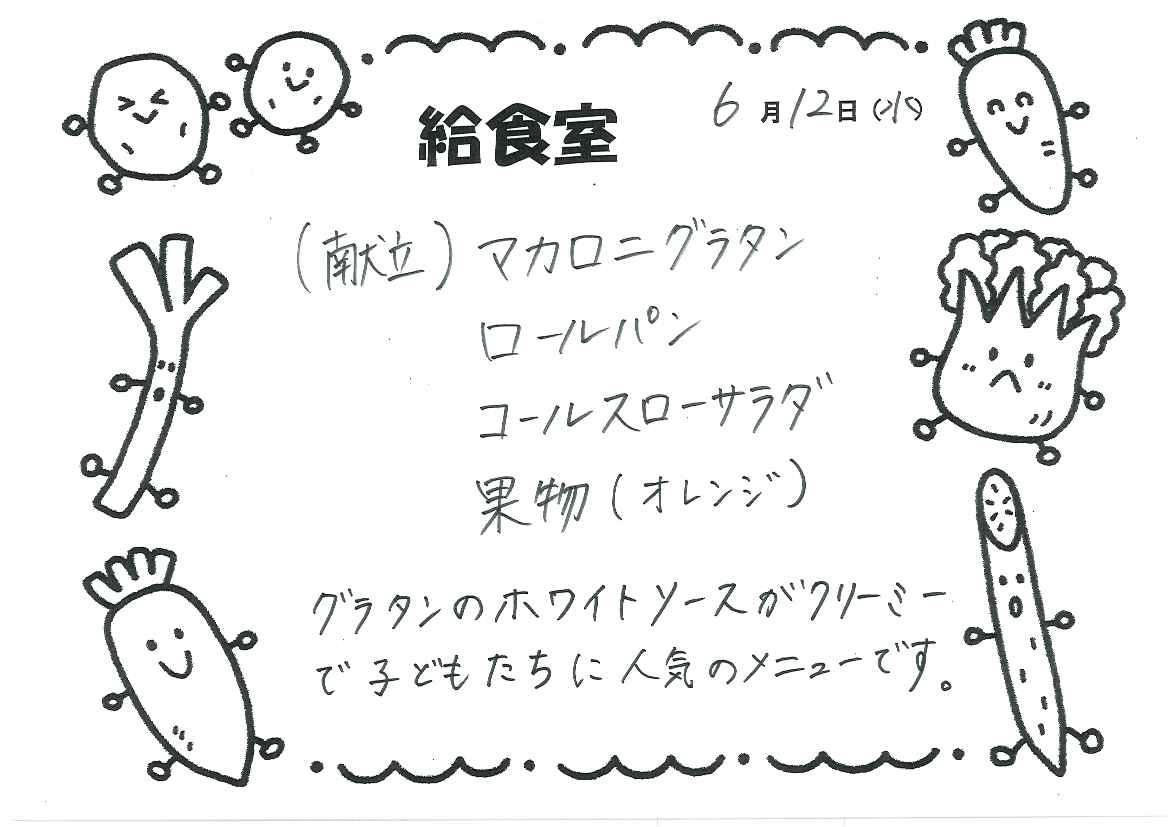 給食室
6月12日(水)
(献立)マカロニグラタン
ロールパン
コールスローサラダ
果物(オレンジ)
グラタンのホワイトソースがクリーミー
で子どもたちに人気のメニューです。